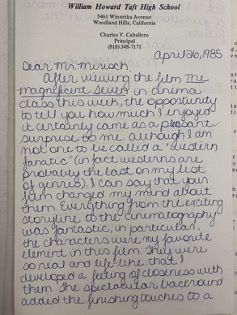 William Howard Taft High School
5461 Winnetka Avenue
Woodland Hills, California
Charles V. Caballero
Principal
(818) 348-7171
April 26, 1985
Dear Mr. Mirisch
After viewing the film The
magnificent Seven in cinema
class this week, the opportunity
to tell you how much I enjoyed
it certainly came as a pleasant
surprise to me. Although I am
not one to be called a "western
fanatic" (in fact westerns are
probably the last on my list
of genres), I can say that your
film changed my mind about
them. Everything from the exciting
storyline to the cinematography
was fantastic, in particular,
the characters were my favorite
element in this film. They were
so real and life-like that I
developed a feeling of closeness with
them. The spectacular background
added the finishing touches to a